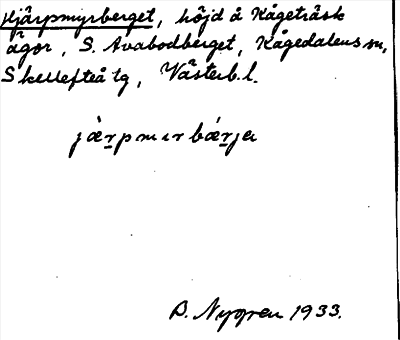 Hjärpmyrberget, höjd å Kågeträsk
ägor, S. Avabodberget, Kågedalens sn,
Skellefteå tg, Västerb. l.
jæṟpmɩrbæṟja
B. Nygren 1933.